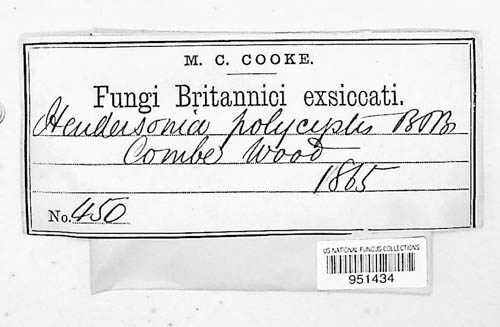 M. C. COOKE.
Fungi Britannici exsiccati.
Hendersonia polycystis B&Br
Combe Wood
1865
No. 450
US NATIONAL FUNGUS COLLECTIONS
951434